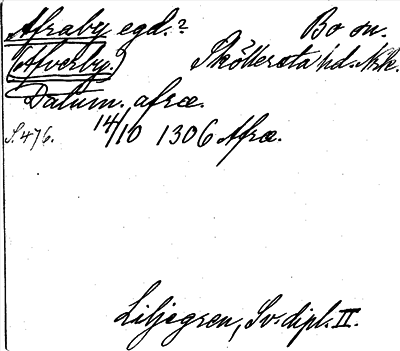 Afraby egd.? Bo sn.
(Afverby.) Sköllersta hd. Nrk.
Datum. afræ.
S. 476. 14/10 1306 Afræ.
Liljegren, Sv. dipl. II.